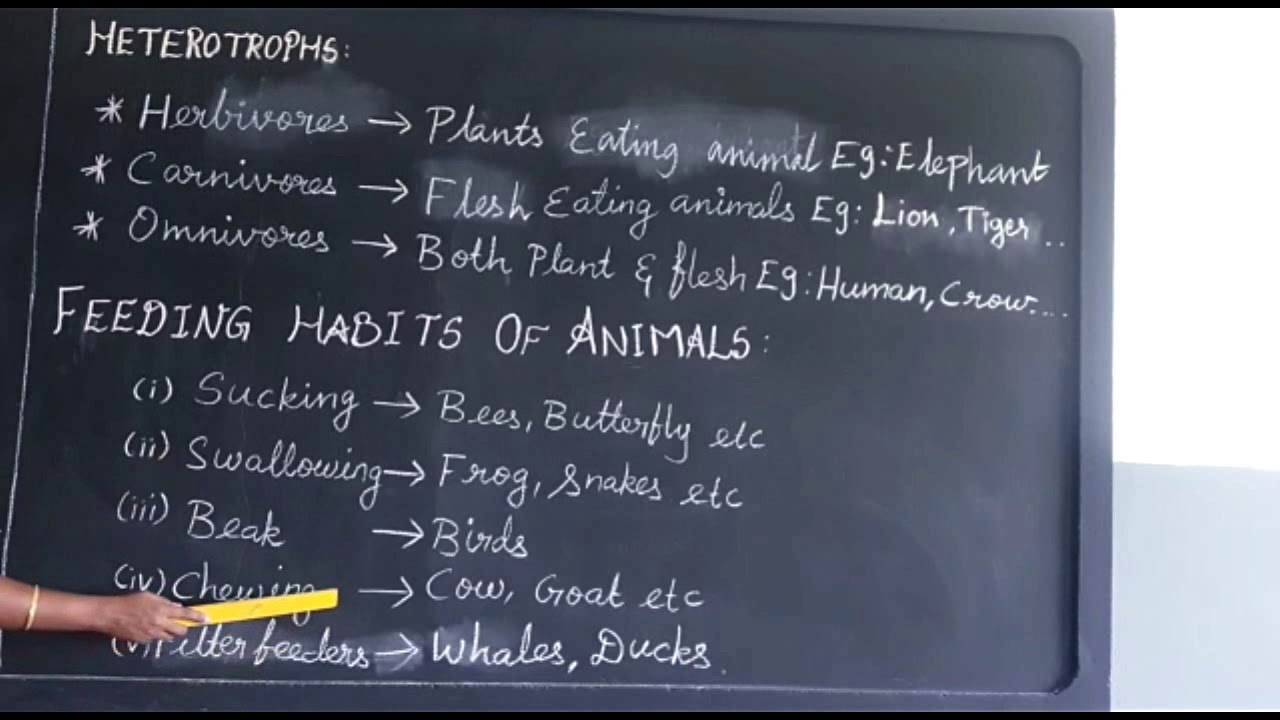 HETEROTROPHS:
* Herbivores → Plants Eating animal Eg: Elephant
* Carnivores → Flesh Eating animals Eg: Lion, Tiger ..
* Omnivores → Both Plant & flesh Eg: Human, Crow....
FEEDING HABITS OF ANIMALS:
(i) Sucking → Bees, Butterfly etc
(ii) Swallowing → Frog, Snakes etc
(iii) Beak → Birds
(iv) Chewing → Cow, Goat etc
(v) Filter feeders → Whales, Ducks.